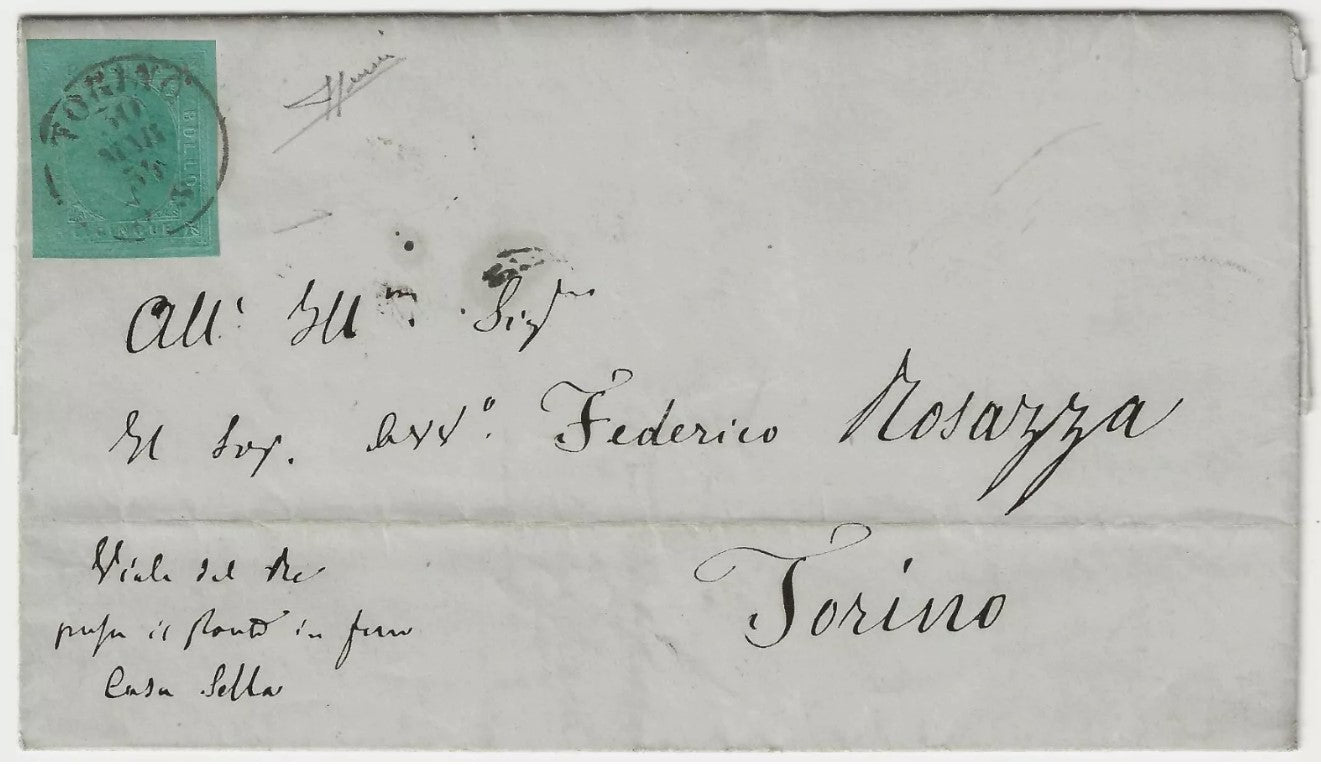 TORINO
30
MAR
54
BOLLO
All' Ill.mo Sig.re
Il Sig. Avv.o Federico Rosazza
Torino
Viale del Re
presso il Ponte in ferro
Casa Sella